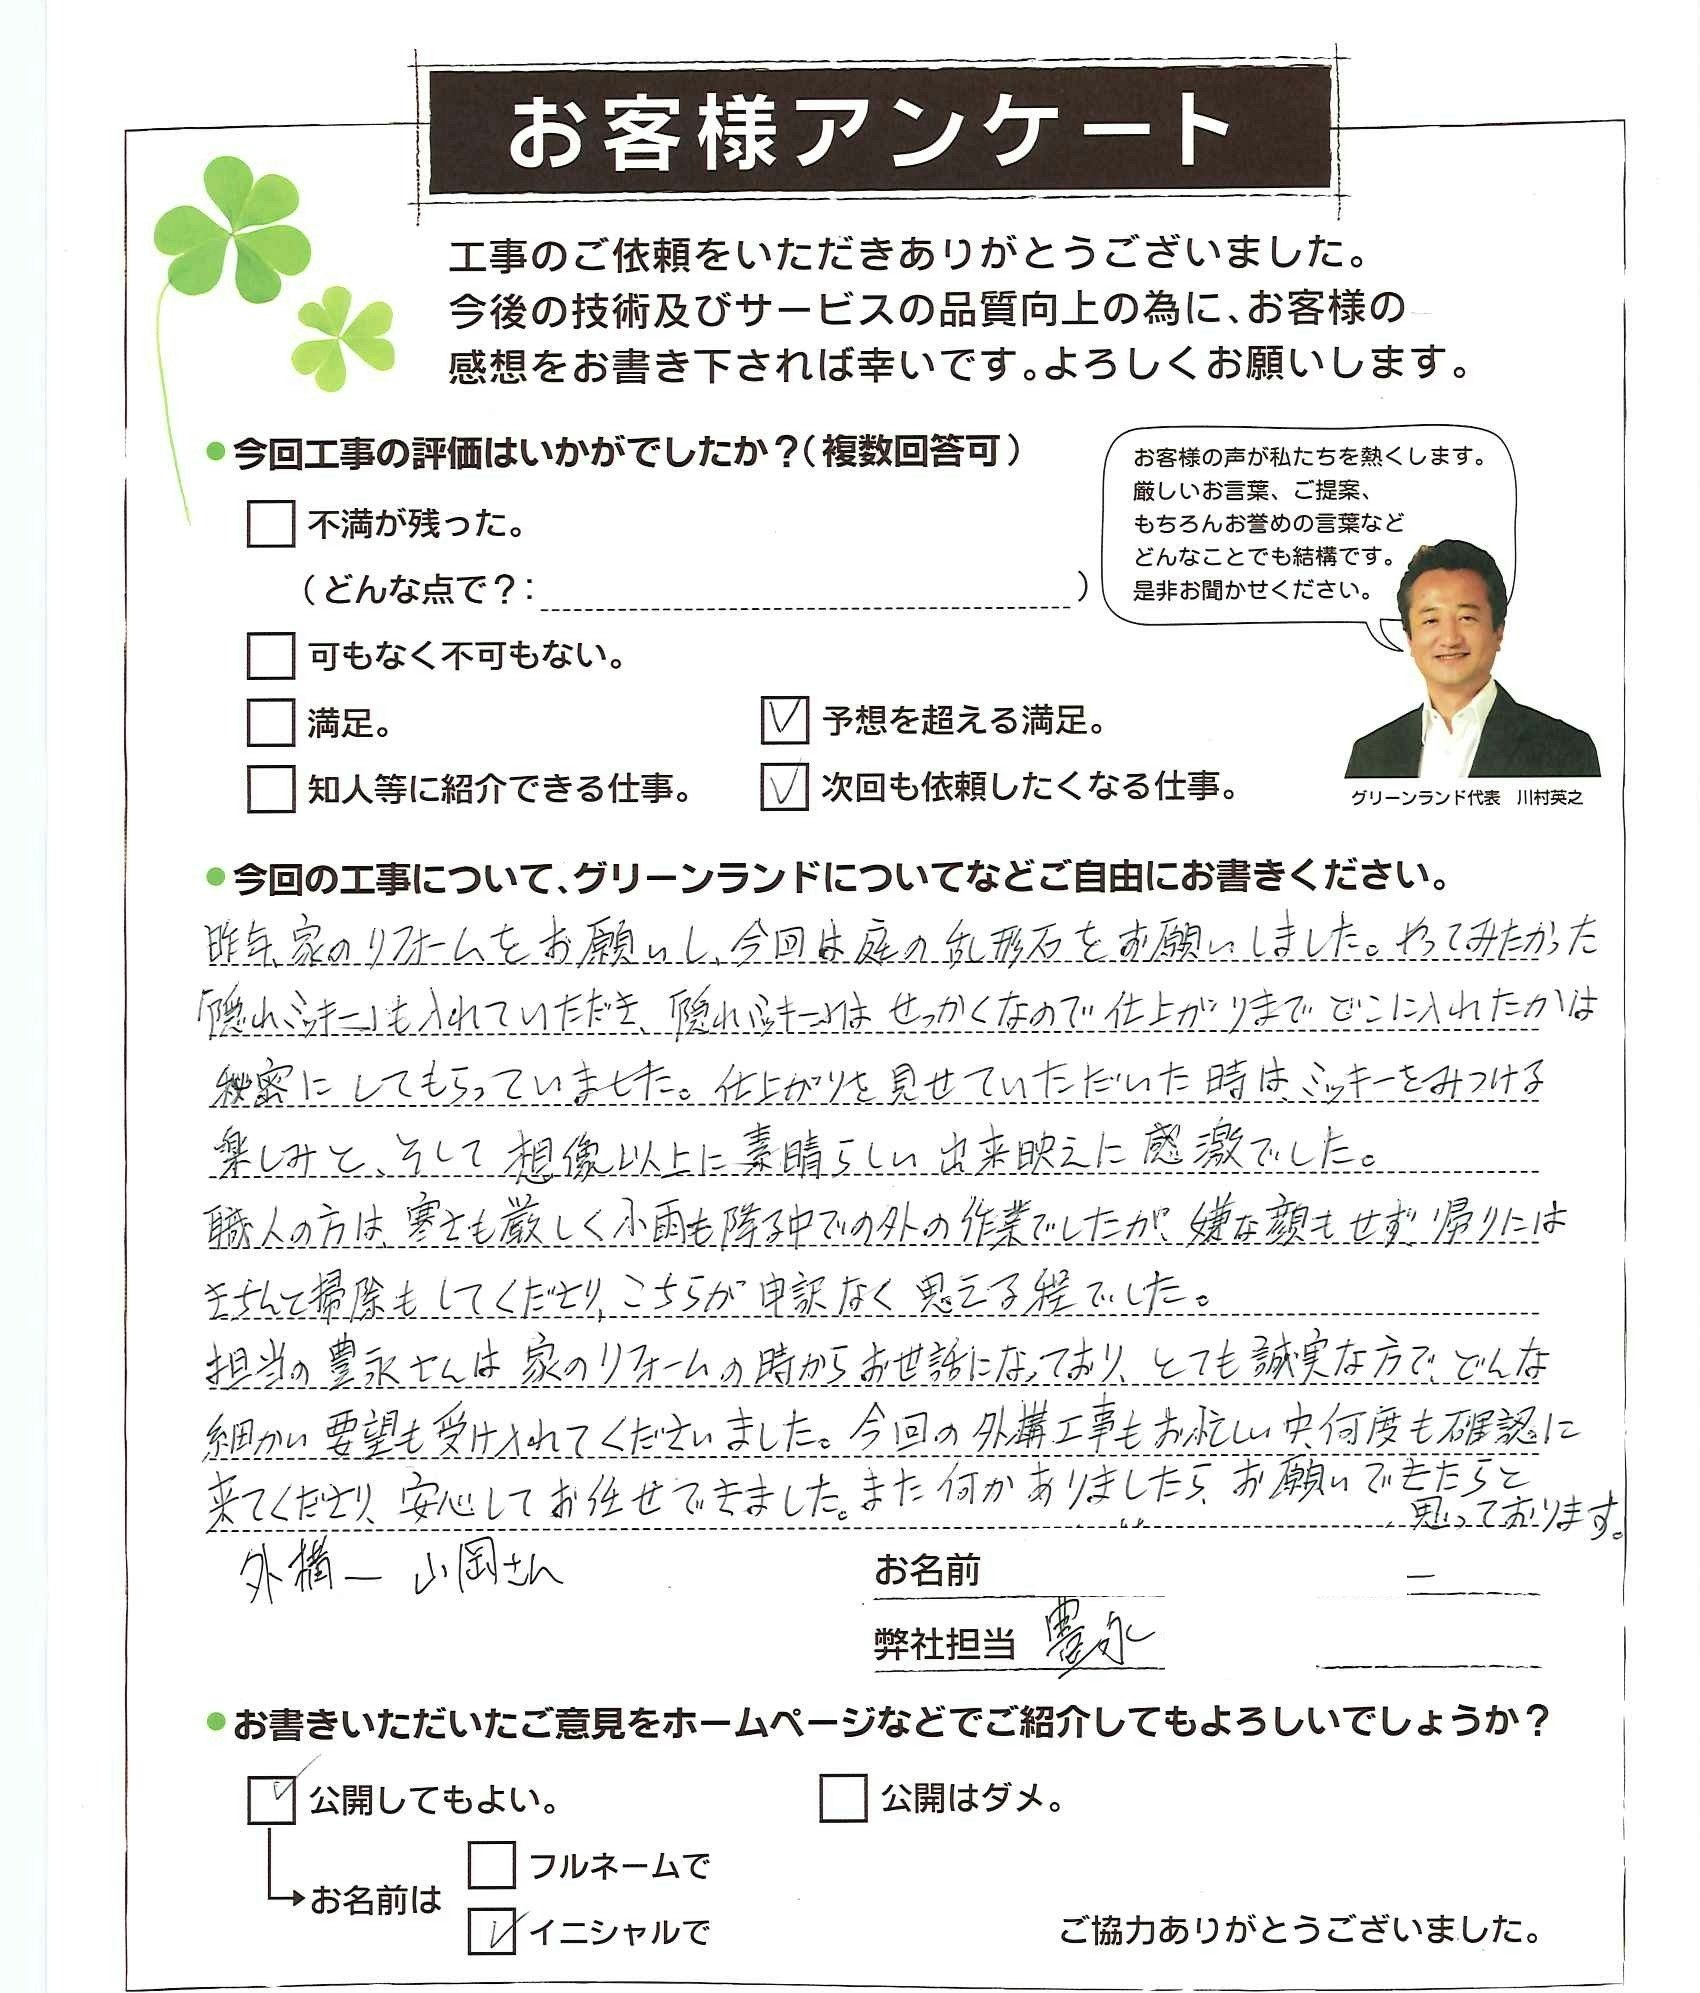 お客様アンケート
工事のご依頼をいただきありがとうございました。
今後の技術及びサービスの品質向上の為に、お客様の
感想をお書き下されば幸いです。よろしくお願いします。
●今回工事の評価はいかがでしたか？（複数回答可）
お客様の声が私たちを熱くします。
厳しいお言葉、ご提案、
もちろんお誉めの言葉など
どんなことでも結構です。
是非お聞かせください。
グリーンランド代表　川村英之
不満が残った。
（どんな点で？：　　　）
可もなく不可もない。
満足。
予想を超える満足。
知人等に紹介できる仕事。
次回も依頼したくなる仕事。
●今回の工事について、グリーンランドについてなどご自由にお書きください。
昨年、家のリフォームをお願いし、今回は庭の乱形石をお願いしました。やってみたかった
「隠れミッキー」も入れていただき、「隠れミッキー」はせっかくなので仕上がりまでどこに入れたかは
秘密にしてもらっていました。仕上がりを見せていただいた時は、ミッキーをみつける
楽しみと、そして想像以上に素晴らしい出来映えに感激でした。
職人の方は、寒さも厳しく小雨も降る中での外の作業でしたが、嫌な顔もせず、帰りには
きちんと掃除もしてくださり、こちらが申訳なく思える程でした。
担当の豊永さんは家のリフォームの時からお世話になっており、とても誠実な方で、どんな
細かい要望も受け入れてくださいました。今回の外構工事もお忙しい中、何度も確認に
来てくださり、安心してお任せできました。また何かありましたら、お願いできたらと
思っております。
外構ー 山岡さん
お名前
弊社担当 豊永
●お書きいただいたご意見をホームページなどでご紹介してもよろしいでしょうか？
公開してもよい。
公開はダメ。
お名前は
フルネームで
イニシャルで
ご協力ありがとうございました。